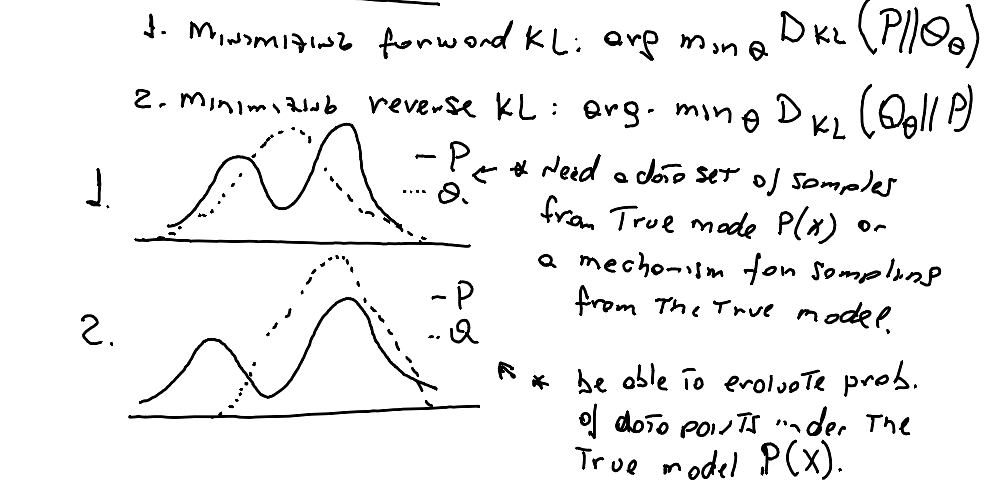 1. Minimizing forward KL: arg min θ D KL (P||Qθ)
2. Minimizing reverse KL: arg. min θ D KL (Qθ||P)
1.
– P
.... Q.
← * Need a data set of samples
from True mode P(x) or
a mechanism for sampling
from The True model.
2.
– P
.. Q
* be able To evaluate prob.
of data points under The
True model P(X).